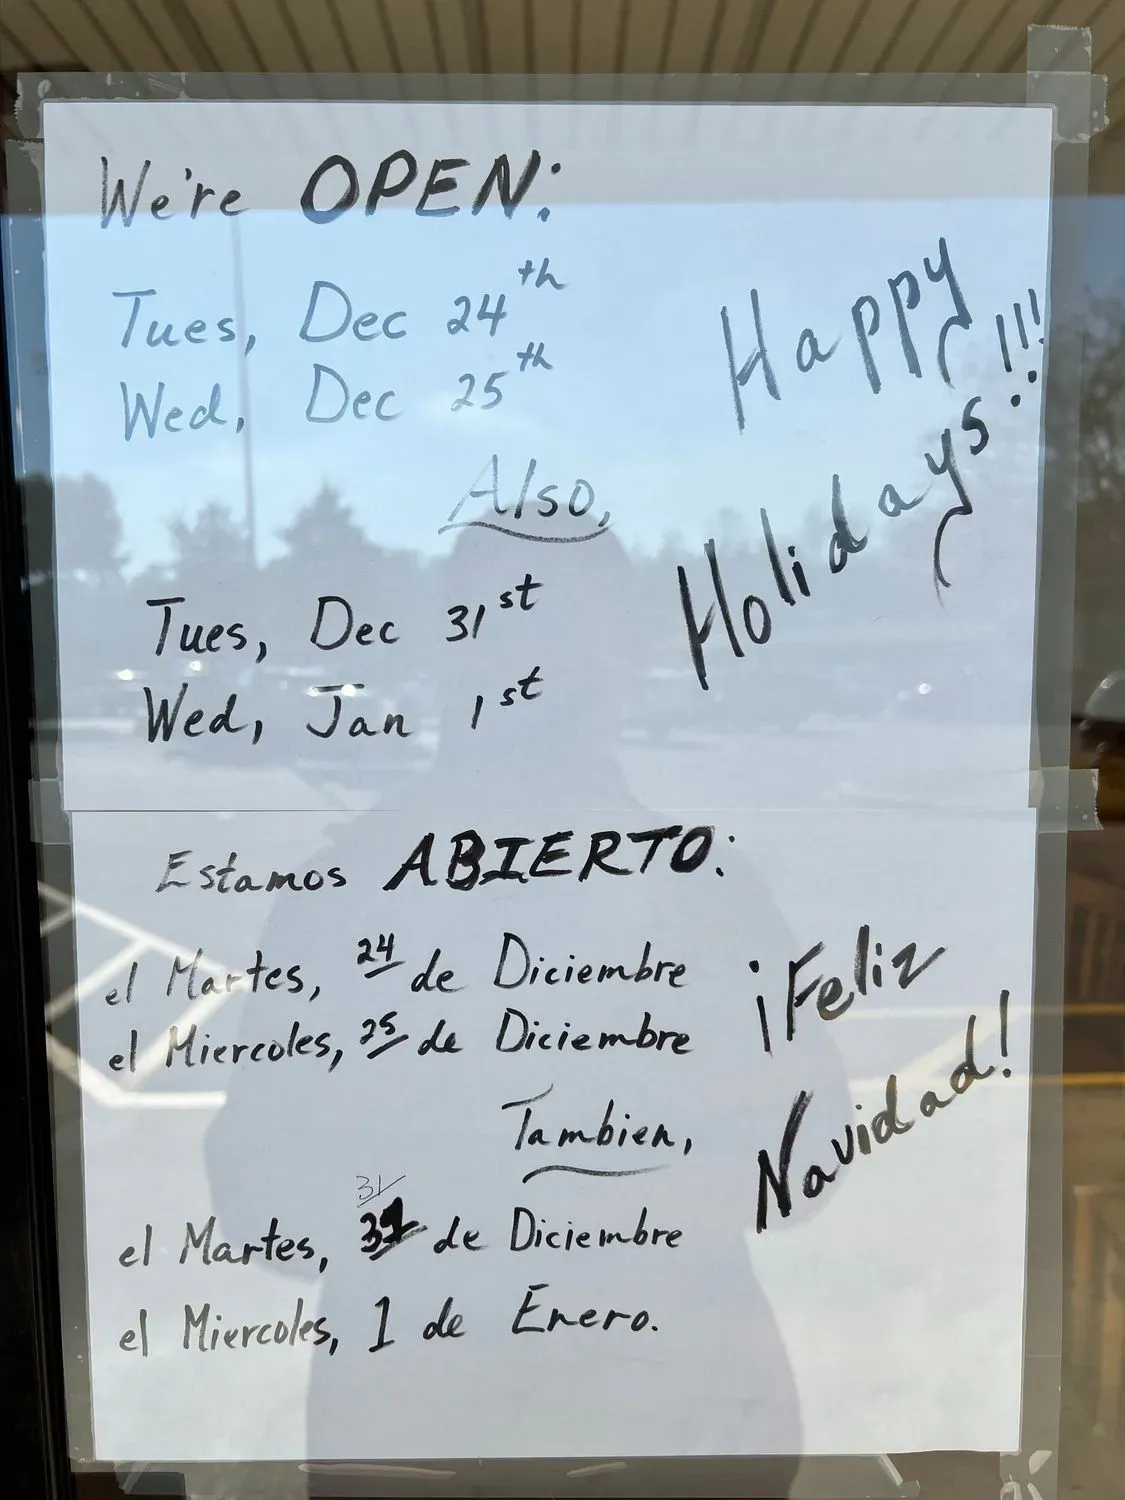 We're OPEN:
Tues, Dec 24th
Wed, Dec 25th
Also,
Tues, Dec 31st
Wed, Jan 1st
Happy
Holidays!!!
Estamos ABIERTO:
el Martes, 24 de Diciembre
el Miercoles, 25 de Diciembre
Tambien,
31
el Martes, 31 de Diciembre
el Miercoles, 1 de Enero.
¡Feliz
Navidad!